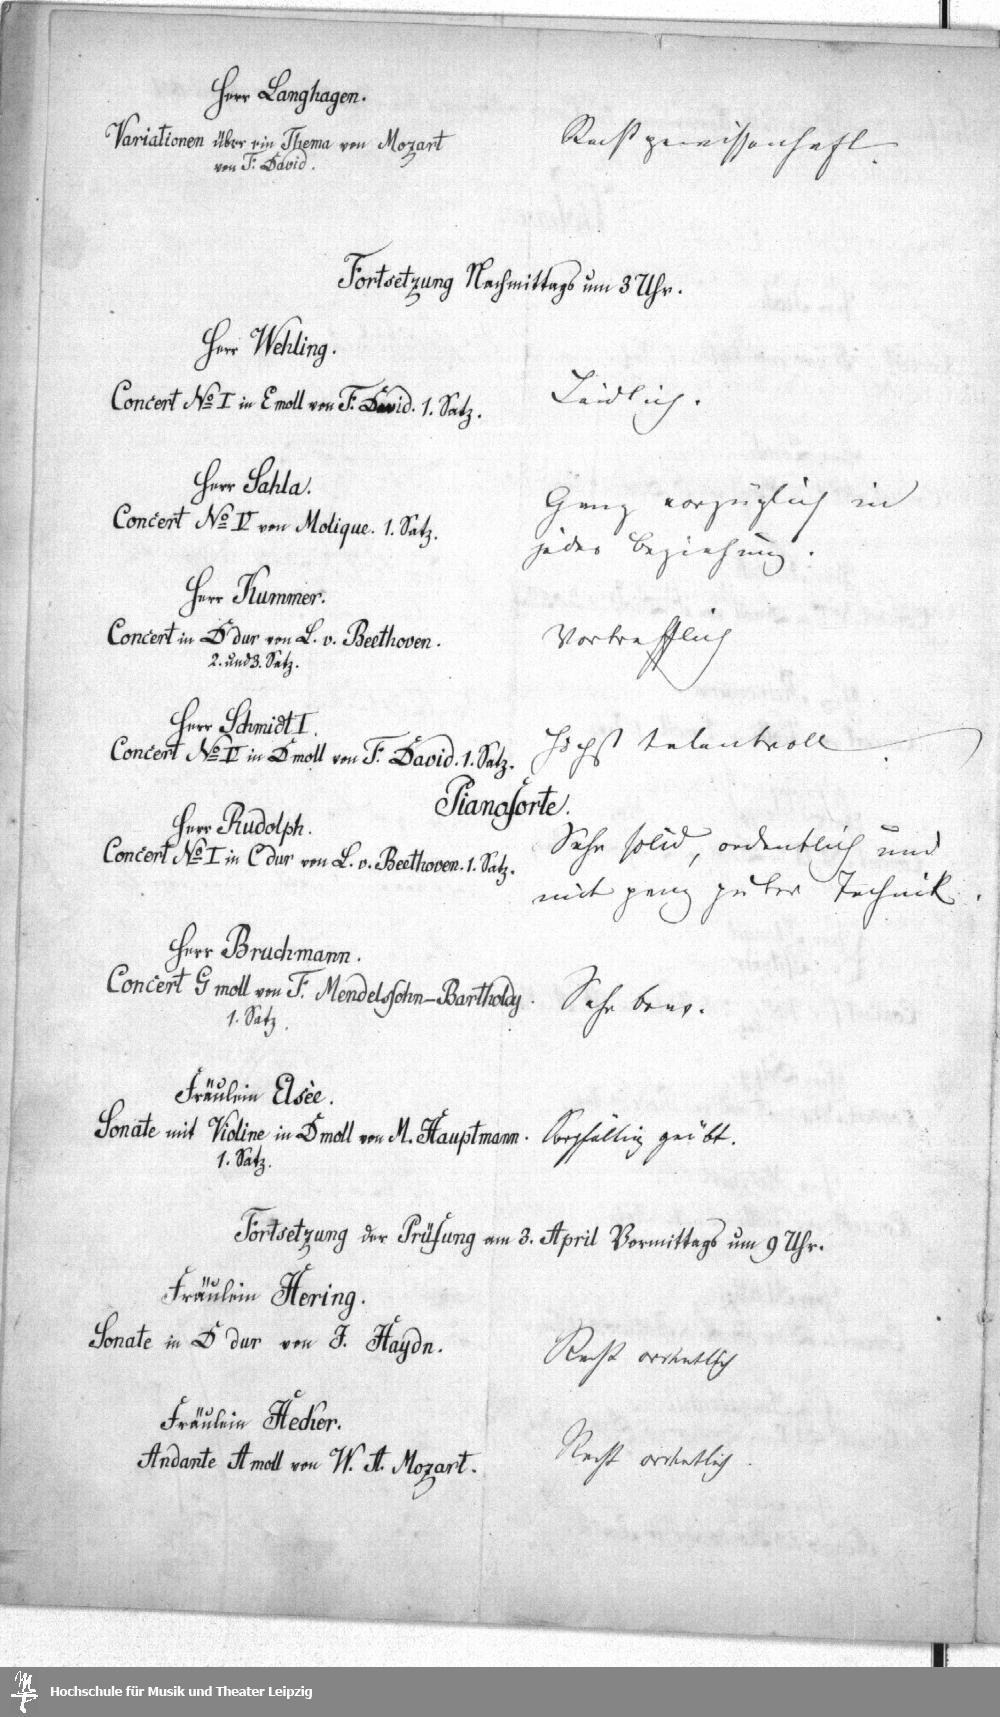 Herr Langhagen.
Variationen über ein Thema von Mozart
von F. David.
Recht gewissenhaft.
Fortsetzung Nachmittags um 3 Uhr.
Herr Wehling.
Concert No I in E moll von F. David. 1. Satz.
Leidlich.
Herr Sahla.
Concert No IV von Molique. 1. Satz.
Ganz vorzüglich in
jeder Beziehung.
Herr Kummer.
Concert in D dur von L. v. Beethoven.
2. und 3. Satz.
Vortrefflich
Herr Schmidt I.
Concert No IV in D moll von F. David. 1. Satz.
Höchst talentvoll.
Pianoforte.
Herr Rudolph.
Concert No I in C dur von L. v. Beethoven. 1. Satz.
Sehr solid, ordentlich und
mit ganz guter Technik.
Herr Bruchmann.
Concert G moll von F. Mendelssohn-Bartholdy.
1. Satz.
Sehr brav.
Fräulein Elsèe.
Sonate mit Violine in D moll von M. Hauptmann.
1. Satz.
Sorgfältig geübt.
Fortsetzung der Prüfung am 3. April Vormittags um 9 Uhr.
Fräulein Hering.
Sonate in D dur von J. Haydn.
Recht ordentlich
Fräulein Hecker.
Andante A moll von W. A. Mozart.
Recht ordentlich.
Hochschule für Musik und Theater Leipzig